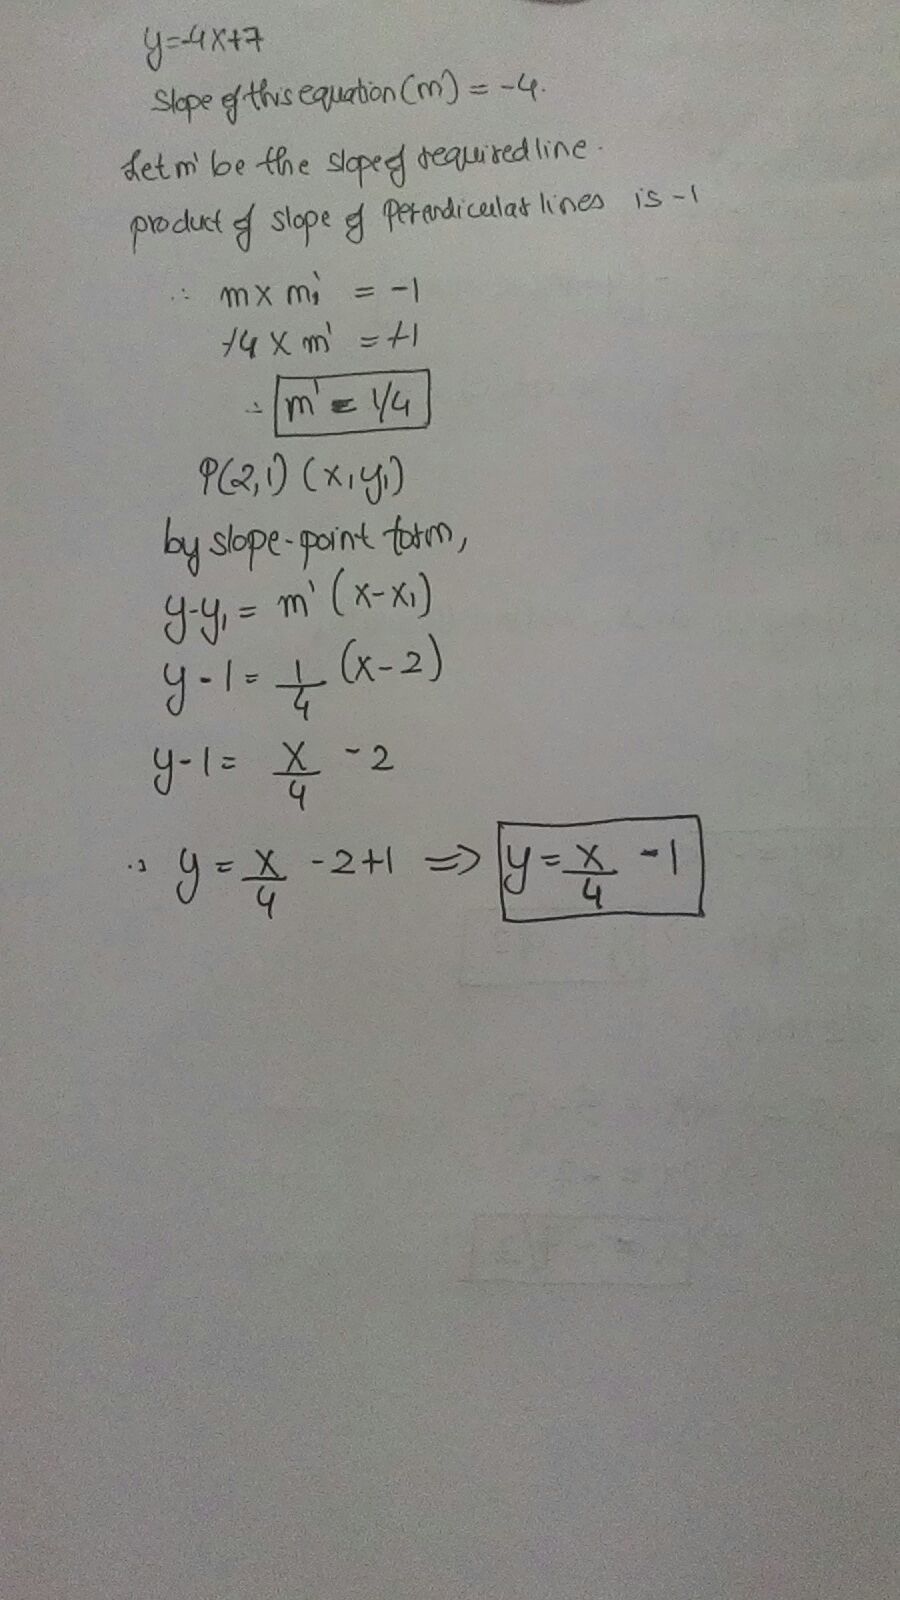 y=-4x+7
Slope of this equation (m) = -4.
Let m' be the slope of required line.
product of slope of perendicular lines is -1
∴ m x m' = -1
-4 x m' = -1
∴ m' = 1/4
P(2,1) (x₁y₁)
by slope-point form,
y-y₁ = m' (x-x₁)
y-1 = 1/4 (x-2)
y-1 = x/4 -2
∴ y = x/4 -2+1 => y = x/4 -1